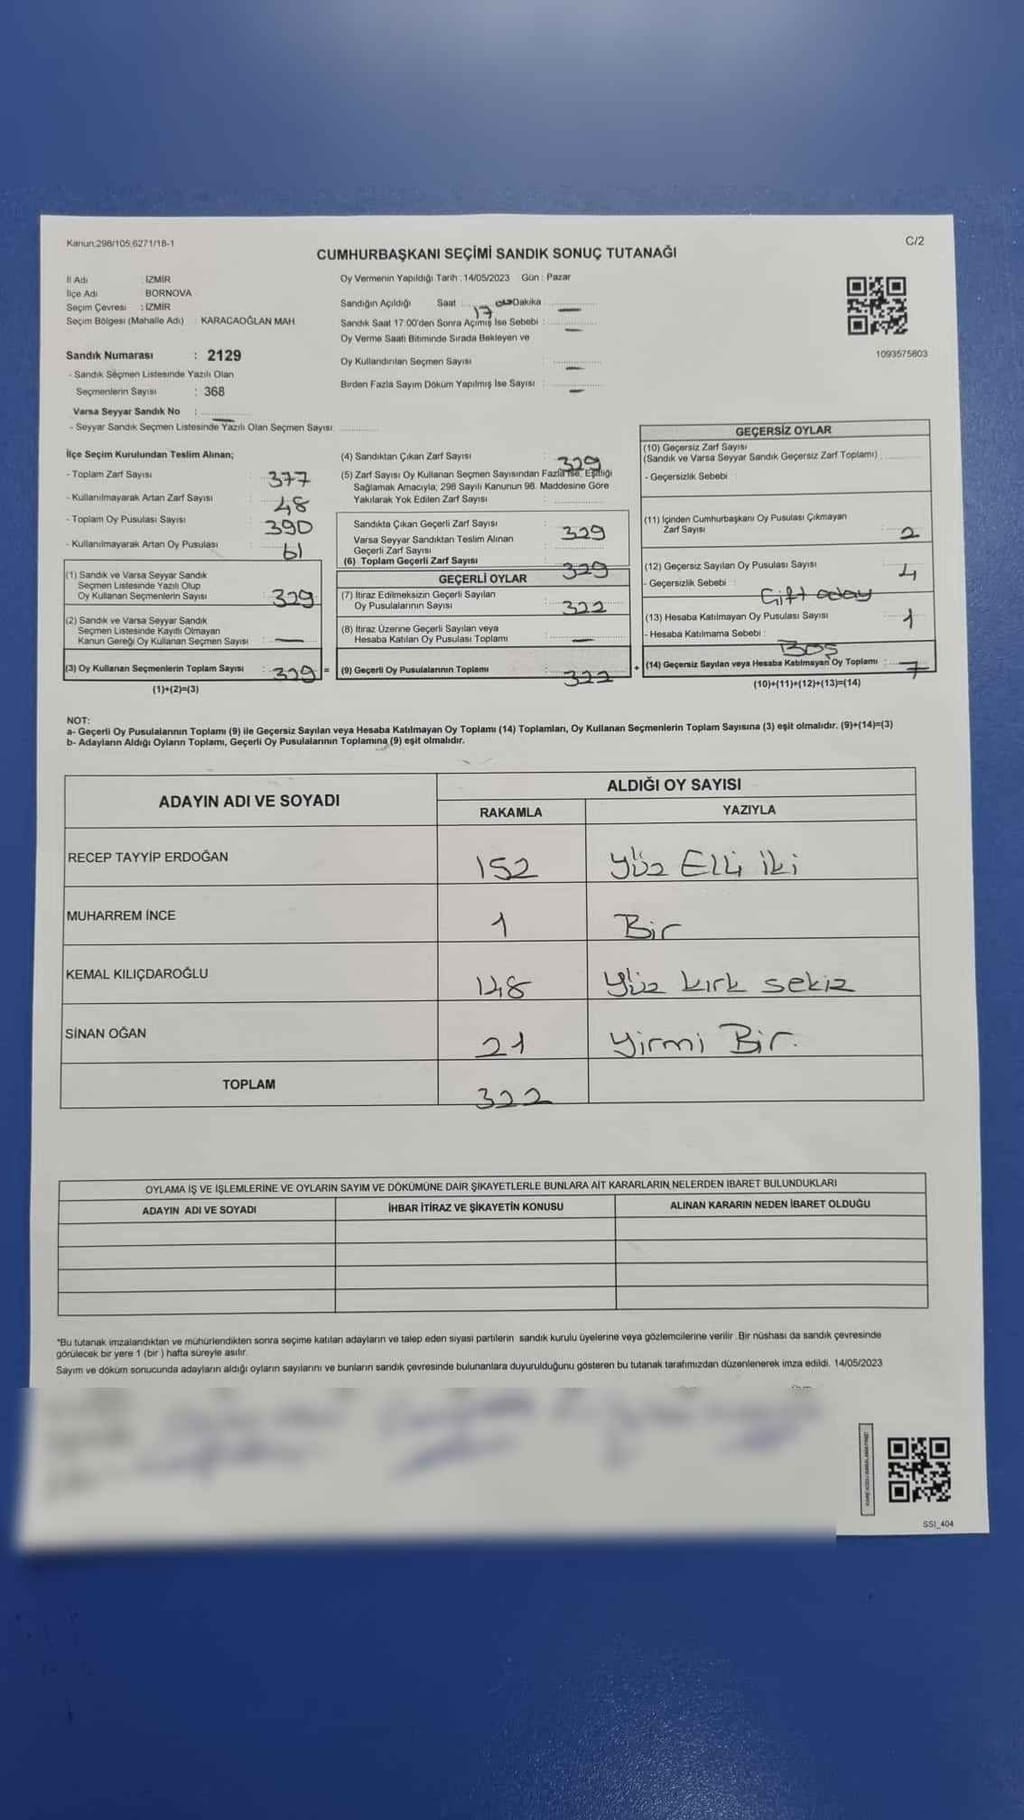 Kanun,298/105,6271/18-1
C/2
CUMHURBAŞKANI SEÇİMİ SANDIK SONUÇ TUTANAĞI
İl Adı : İZMİR
İlçe Adı : BORNOVA
Seçim Çevresi : İZMİR
Seçim Bölgesi (Mahalle Adı) KARACAOĞLAN MAH
Sandık Numarası : 2129
- Sandık Seçmen Listesinde Yazılı Olan
Seçmenlerin Sayısı : 368
Varsa Seyyar Sandık No :
- Seyyar Sandık Seçmen Listesinde Yazılı Olan Seçmen Sayısı
Oy Vermenin Yapıldığı Tarih : 14/05/2023 Gün : Pazar
Sandığın Açıldığı Saat 17 Dakika
Sandık Saat 17:00'den Sonra Açımış İse Sebebi :
Oy Verme Saati Bitiminde Sırada Bekleyen ve
Oy Kullandırılan Seçmen Sayısı
Birden Fazla Sayım Döküm Yapılmış İse Sayısı
1093575803
İlçe Seçim Kurulundan Teslim Alınan;
- Toplam Zarf Sayısı 377
- Kullanılmayarak Artan Zarf Sayısı 48
- Toplam Oy Pusulası Sayısı 390
- Kullanılmayarak Artan Oy Pusulası 61
(1) Sandık ve Varsa Seyyar Sandık
Seçmen Listesinde Yazılı Olup
Oy Kullanan Seçmenlerin Sayısı 329
(2) Sandık ve Varsa Seyyar Sandık
Seçmen Listesinde Kayıtlı Olmayan
Kanun Gereği Oy Kullanan Seçmen Sayısı : —
(3) Oy Kullanan Seçmenlerin Toplam Sayısı : 329 =
(1)+(2)=(3)
(4) Sandıktan Çıkan Zarf Sayısı 329
(5) Zarf Sayısı Oy Kullanan Seçmen Sayısından Fazla İse, Eşitliği
Sağlamak Amacıyla; 298 Sayılı Kanunun 98. Maddesine Göre
Yakılarak Yok Edilen Zarf Sayısı :
Sandıkta Çıkan Geçerli Zarf Sayısı : 329
Varsa Seyyar Sandıktan Teslim Alınan
Geçerli Zarf Sayısı
(6) Toplam Geçerli Zarf Sayısı : 329
GEÇERLİ OYLAR
(7) İtiraz Edilmeksizin Geçerli Sayılan
Oy Pusulalarının Sayısı : 322
(8) İtiraz Üzerine Geçerli Sayılan veya
Hesaba Katılan Oy Pusulası Toplamı : —
(9) Geçerli Oy Pusulalarının Toplamı : 322 +
GEÇERSİZ OYLAR
(10) Geçersiz Zarf Sayısı
(Sandık ve Varsa Seyyar Sandık Geçersiz Zarf Toplamı)
- Geçersizlik Sebebi :
(11) İçinden Cumhurbaşkanı Oy Pusulası Çıkmayan
Zarf Sayısı : 2
(12) Geçersiz Sayılan Oy Pusulası Sayısı : 4
- Geçersizlik Sebebi : Çift aday
(13) Hesaba Katılmayan Oy Pusulası Sayısı : 1
- Hesaba Katılmama Sebebi : BOŞ
(14) Geçersiz Sayılan veya Hesaba Katılmayan Oy Toplamı : 7
(10)+(11)+(12)+(13)=(14)
NOT:
a- Geçerli Oy Pusulalarının Toplamı (9) ile Geçersiz Sayılan veya Hesaba Katılmayan Oy Toplamı (14) Toplamları, Oy Kullanan Seçmenlerin Toplam Sayısına (3) eşit olmalıdır. (9)+(14)=(3)
b- Adayların Aldığı Oyların Toplamı, Geçerli Oy Pusulalarının Toplamına (9) eşit olmalıdır.
ADAYIN ADI VE SOYADI
ALDIĞI OY SAYISI
RAKAMLA YAZIYLA
RECEP TAYYİP ERDOĞAN 152 Yüz Elli iki
MUHARREM İNCE 1 Bir
KEMAL KILIÇDAROĞLU 148 Yüz kırk sekiz
SİNAN OĞAN 21 Yirmi Bir.
TOPLAM 322
OYLAMA İŞ VE İŞLEMLERİNE VE OYLARIN SAYIM VE DÖKÜMÜNE DAİR ŞİKAYETLERLE BUNLARA AİT KARARLARIN NELERDEN İBARET BULUNDUKLARI
ADAYIN ADI VE SOYADI İHBAR İTİRAZ VE ŞİKAYETİN KONUSU ALINAN KARARIN NEDEN İBARET OLDUĞU
*Bu tutanak imzalandıktan ve mühürlendikten sonra seçime katılan adayların ve talep eden siyasi partilerin sandık kurulu üyelerine veya gözlemcilerine verilir. Bir nüshası da sandık çevresinde
görülecek bir yere 1 (bir ) hafta süreyle asılır.
Sayım ve döküm sonucunda adayların aldığı oyların sayılarını ve bunların sandık çevresinde bulunanlara duyurulduğunu gösteren bu tutanak tarafımızdan düzenlenerek imza edildi. 14/05/2023
SSI_404